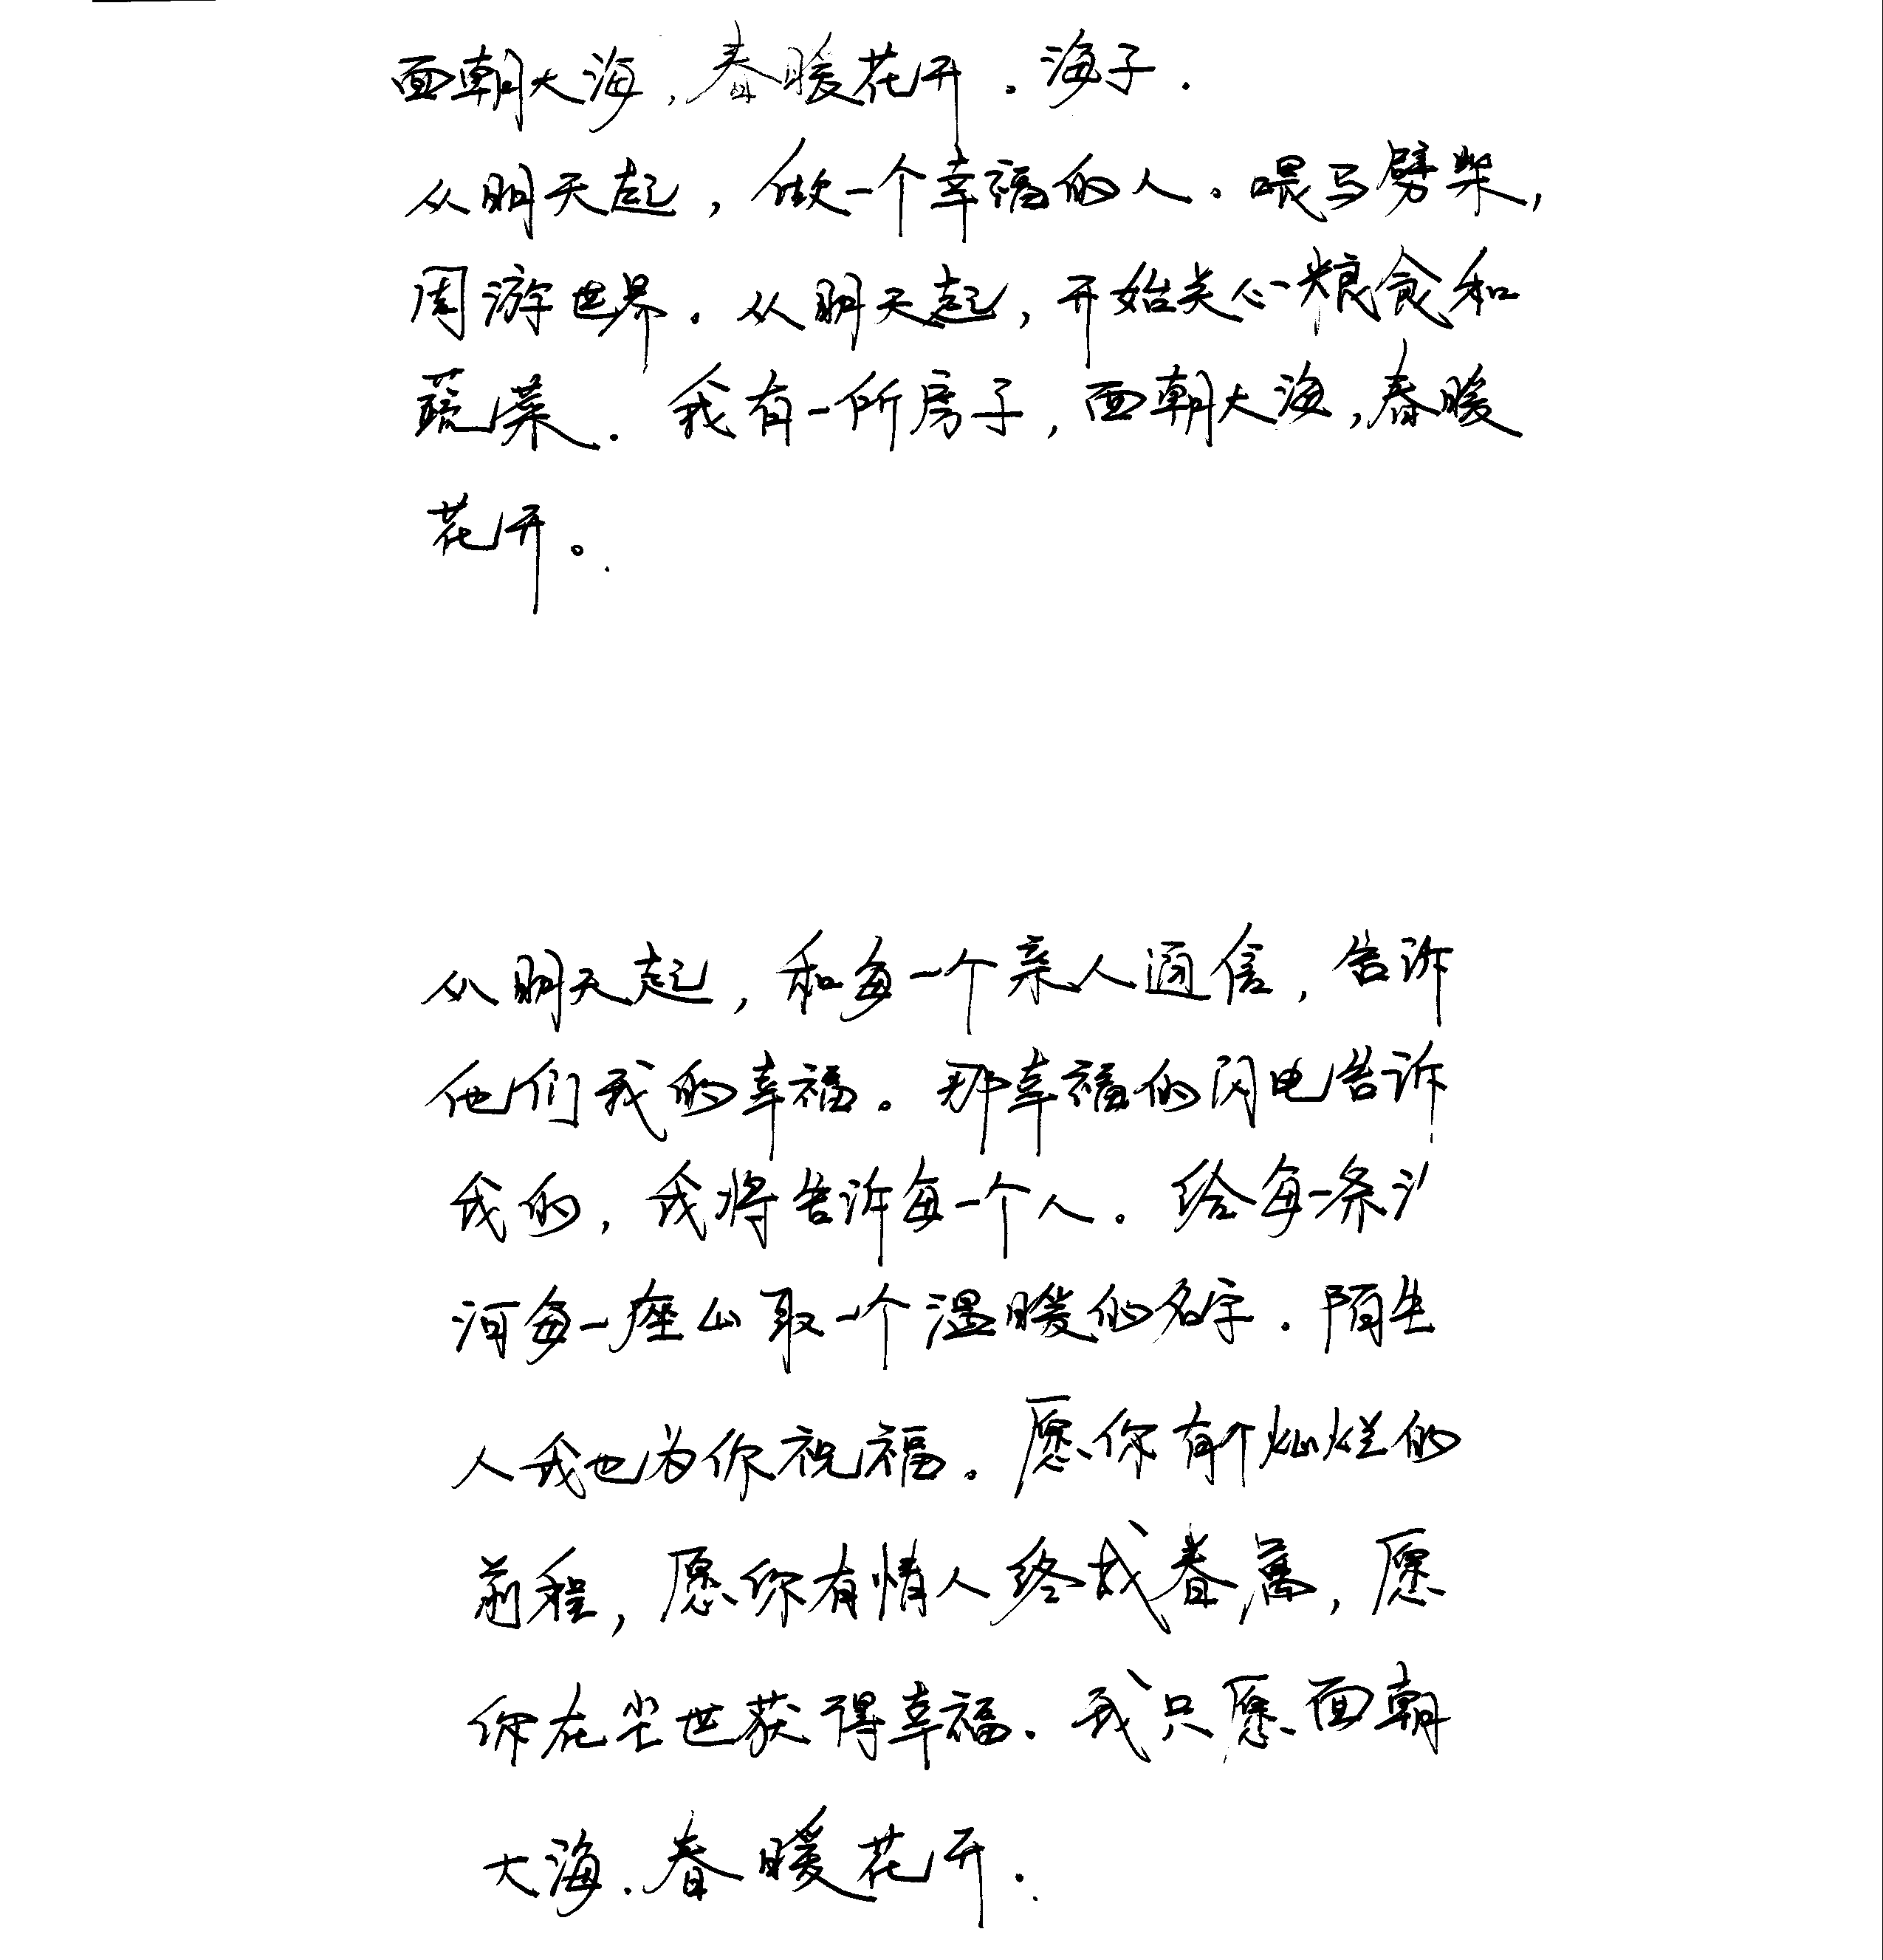 面朝大海,春暖花开。海子.
从明天起,做一个幸福的人。喂马劈柴,
周游世界.从明天起,开始关心粮食和
蔬菜.我有一所房子,面朝大海,春暖
花开。
从明天起,和每一个亲人通信,告诉
他们我的幸福。那幸福的闪电告诉
我的,我将告诉每一个人.给每一条
河每一座山取一个温暖的名字.陌生
人我也为你祝福。愿你有个灿烂的
前程,愿你有情人终成眷属,愿
你在尘世获得幸福.我只愿面朝
大海.春暖花开.